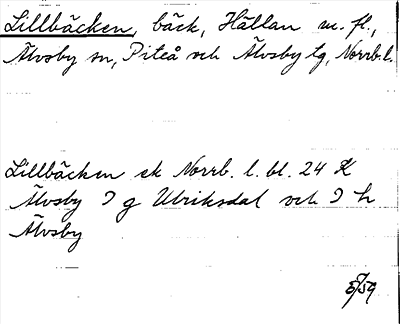 Lillbäcken, bäck, Hällan m. fl.,
Älvsby sn, Piteå och Älvsby tg, Norrb. l.
Lillbäcken ek Norrb. l. bl. 24 K
Älvsby I g Ulriksdal och I h
Älvsby